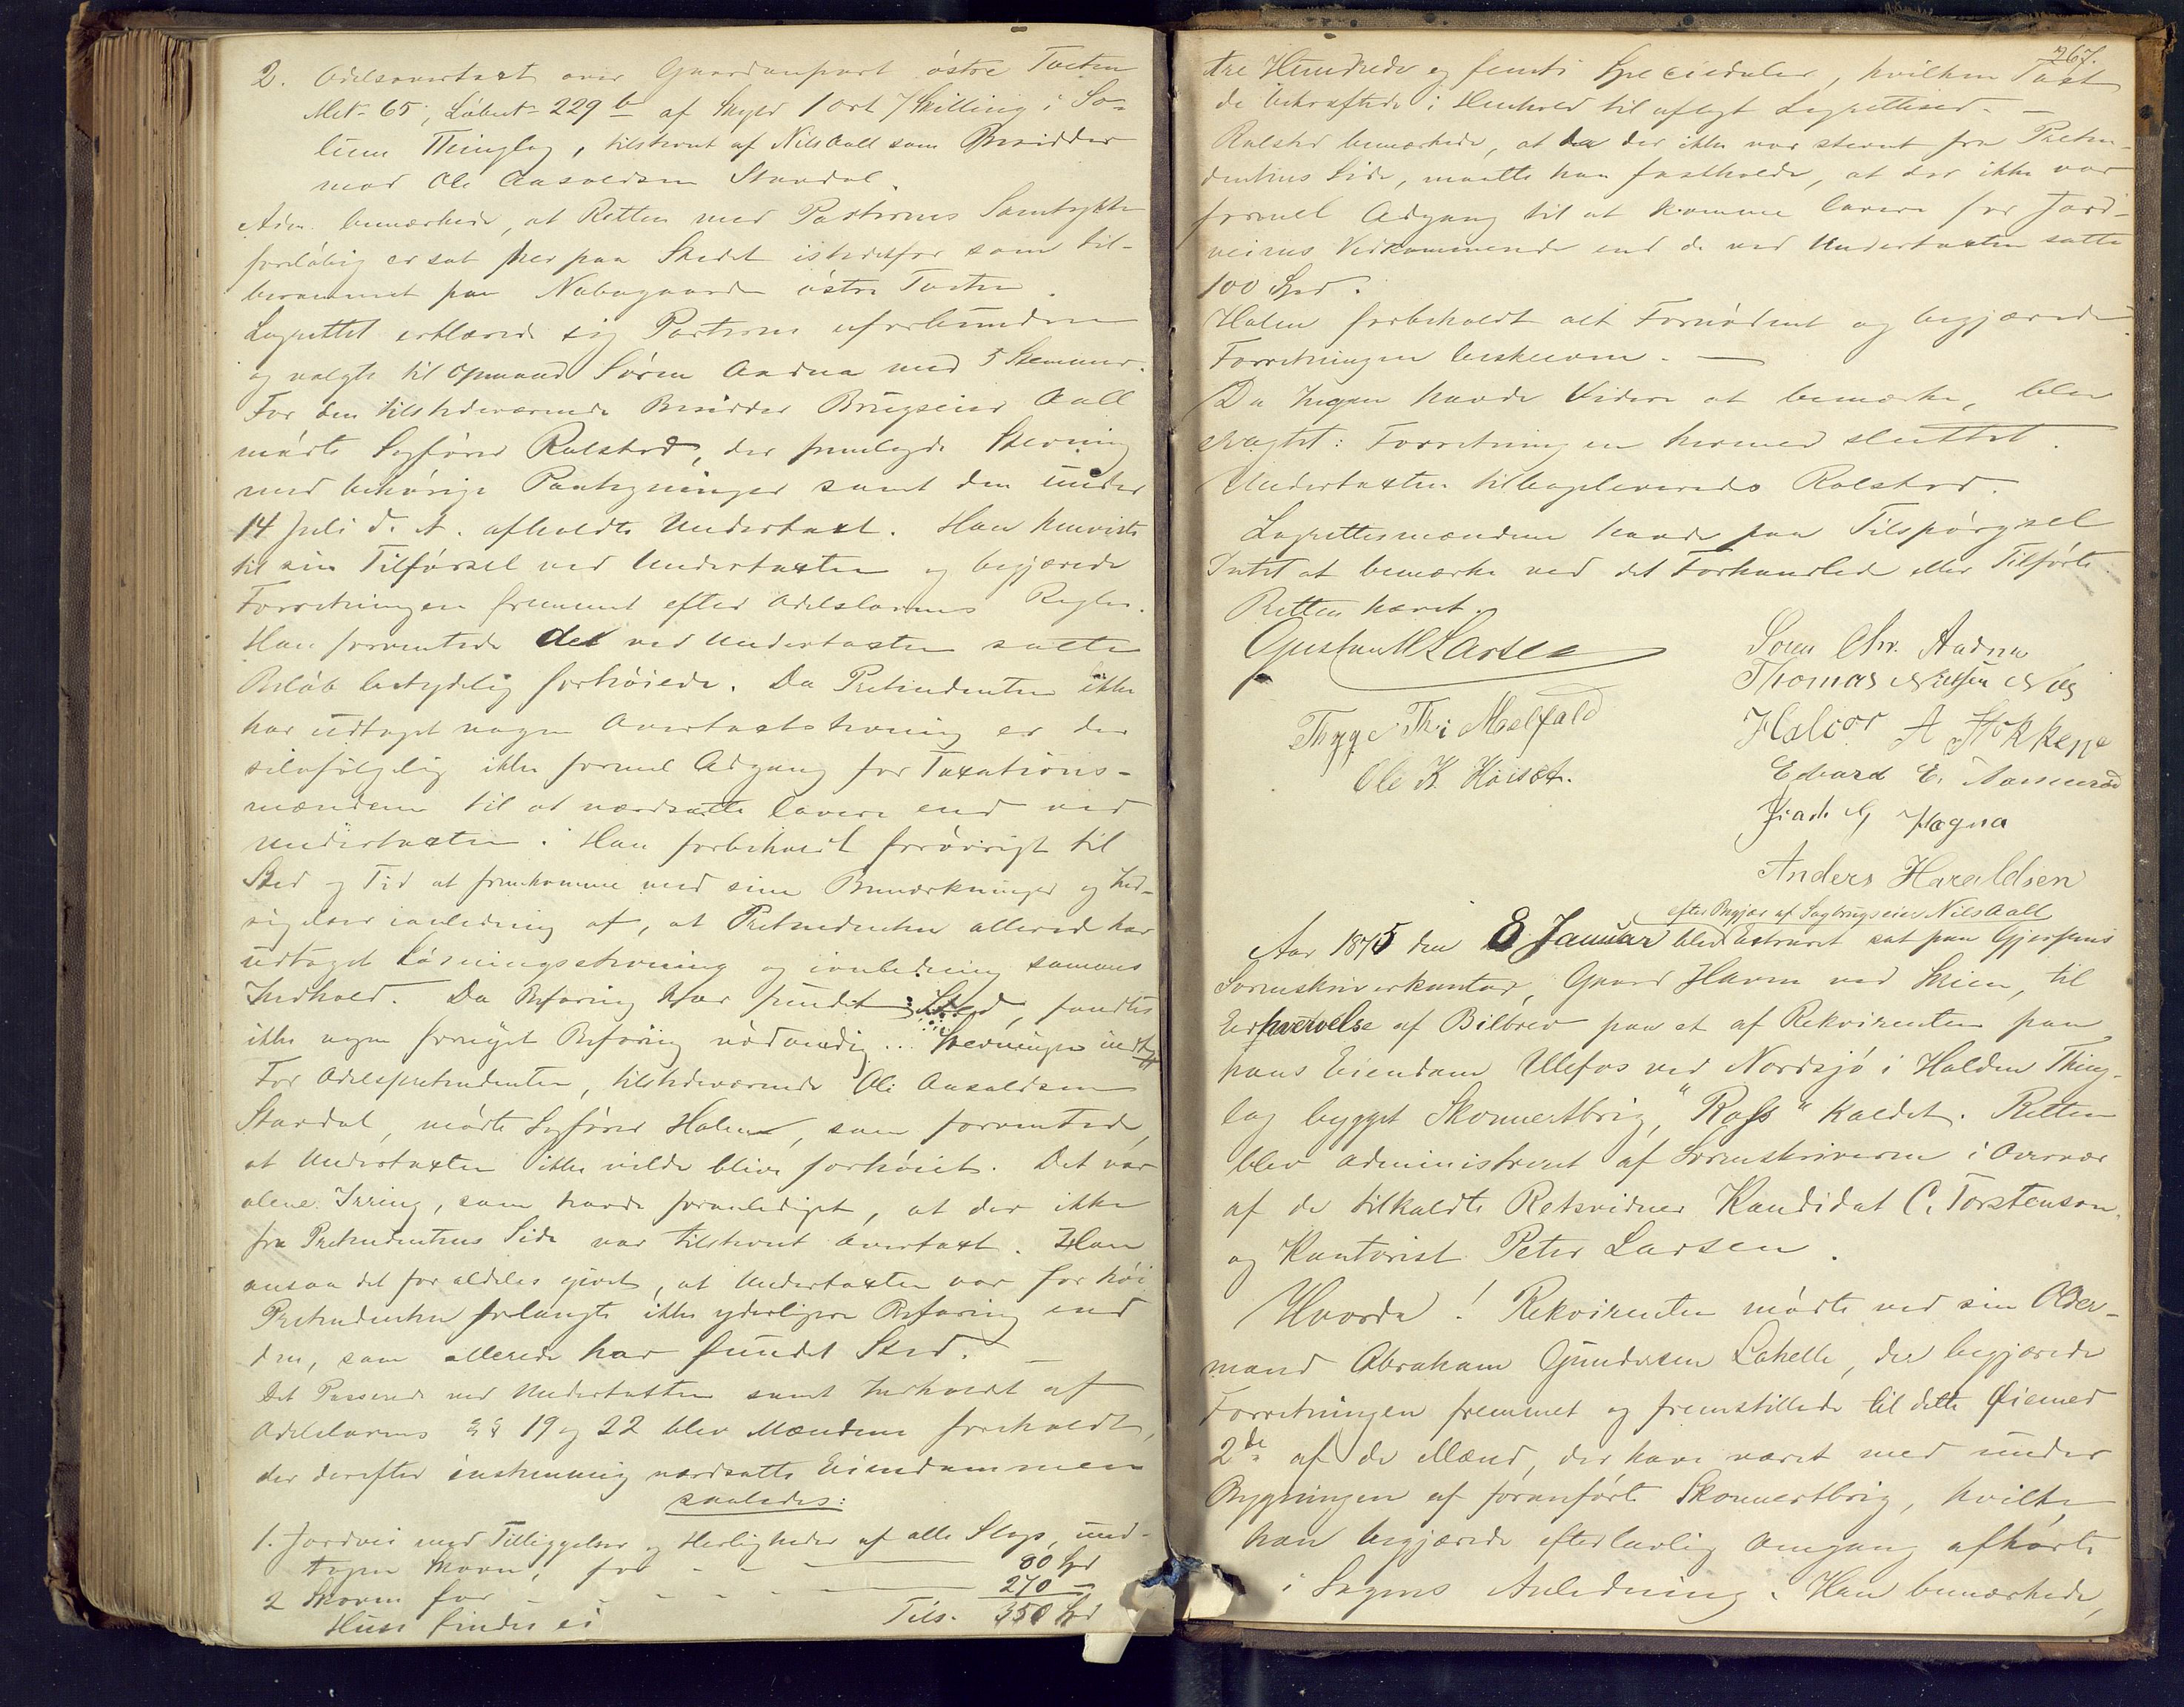 2. Odelsovertaxt over Gaardanpart østre Tveten
Mat. 65, Løbent 229 b af Skyld 1 ort 7 Skilling i So-
lum Thinglag, tilstevnt af Nils Aall som Besidder
mod Ole Aasoldsen Stavdal.
Adm. bemærkede, at Retten med Parternes Samtykke
foreløbig er sat her paa Stedet istedetfor som til-
berammet paa Nabogaarden østre Tveten.
Lagrettet erklærede sig Parterne uforbunden
og valgte til Opmand Søren Aadna med 5 Stemmer.
For den tilstedeværende Besidder Brugseier Aall
mødte Sagfører Rolstad, der fremlagde Stevning
med behørige Paategninger samt den under
14 Juli d. A. afholdte Undertaxt. Han henviste
til sin Tilførsel ved Undertaxten og begjærede
Forretningen fremmet efter Odelslovens Regler.
Han forventede det ved Undertaxten satte
Beløb betydelig forhøiede. Da Pretendenten ikke
har udtaget nogen Overtaxtstevning er der
selvfølgelig ikke formel Adgang for Taxations-
mændene til at værdsætte lavere end ved
Undertaxten. Han forbeholdt forøvrigt til
Sted og Tid at fremkomme med sine Bemærkninger og Ind-
sigelser i anledning af, at Pretendenten allerede har
udtaget Løsningsstevning og i anledning sammes
Indhold. Da Befaring har fundet Sted, fandtes
ikke nogen fornyet Befaring nødvendig... Stevningen indt.
For Odelspretendenten, tilstedeværende Ole Aasoldsen
Stavdal, mødte Sagfører Holm, som forventede,
at Undertaxten ikke vilde blive forhøiet. Det var
alene Irring, som havde foranlediget, at der ikke
fra Pretendentens Side var tilstevnt Overtaxt. Han
ansaa det for aldeles givet, at Undertaxten var for høi
Pretendenten forlangte ikke yderligere Befaring end
den, som allerede har fundet Sted. —
Det Passerede ved Undertaxten samt Indholdet af
Odelslovens §§ 19 og 22 blev Mændene foreholdt,
der derefter enstemmig værdsatte Eiendommen
saaledes:
1. Jordvei med Tilliggelser og Herligheder af alle Slags, und-
tagen Skoven, for - - 80 Spd
2 Skoven for - - - - 270 -
Huse findes ei Tils. 350 Spd
267.
tre Hundrede og femti Speciedaler, hvilken Taxt
de bekræftede i Henhold til aflagt Lagrettesed. —
Rolstad bemærkede, at da der ikke var stevnt fra Preten-
dentens Side, maatte han fastholde, at der ikke var
formel Adgang til at komme lavere for Jord-
veiens Vedkommende end de ved Undertaxten satte
100 Spd.
Holm forbeholdt alt Fornødent og begjærede
Forretningen beskreven. —
Da Ingen havde Videre at bemærke, blev
eragtet: Forretningen hermed sluttet.
Undertaxten tilbageleveredes Rolstad.
Lagrettesmændene havde paa Tilspørgsel
Intet at bemærke ved det Forhandlede eller Tilførte.
Retten hævet.
Gustav M Larsen Søren Chr. Aadna
Thomas Nilsen Næs
Thyge Th: Melfald Halvor A Stokkeje
Ole K. Høiset. Edvard E.
Anders Haraldsen
efter Begjær af Sagbrugseier Nils Aall
Aar 1875 den 8 Januar blev Extraret sat paa Gjerpens
Sorenskriverkontor, Gaard Haven ved Skien, til
Erhvervelse af Bilbrev paa et af Rekvirenten paa
hans Eiendom Ulefos ved Nordsjø i Holden Thing-
lag bygget Skonnertbrig, "Rap" kaldet. Retten
blev administreret af Sorenskriveren i Overvær
af de tilkaldte Retsvidner Kandidat C. Torstenson
og Kontorist Peter Larsen.
Hvorda! Rekvirenten mødte ved sin Older-
mand Abraham Gundersen Lahelle, der begjærede
Forretningen fremmet og fremstillede til dette Øiemed
2de af de Mænd, der have været med under
Bygningen af foranførte Skonnertbrig, hvilke
han begjærede efter lovlig Omgang afhørte
i Sagens Anledning. Han bemærkede,